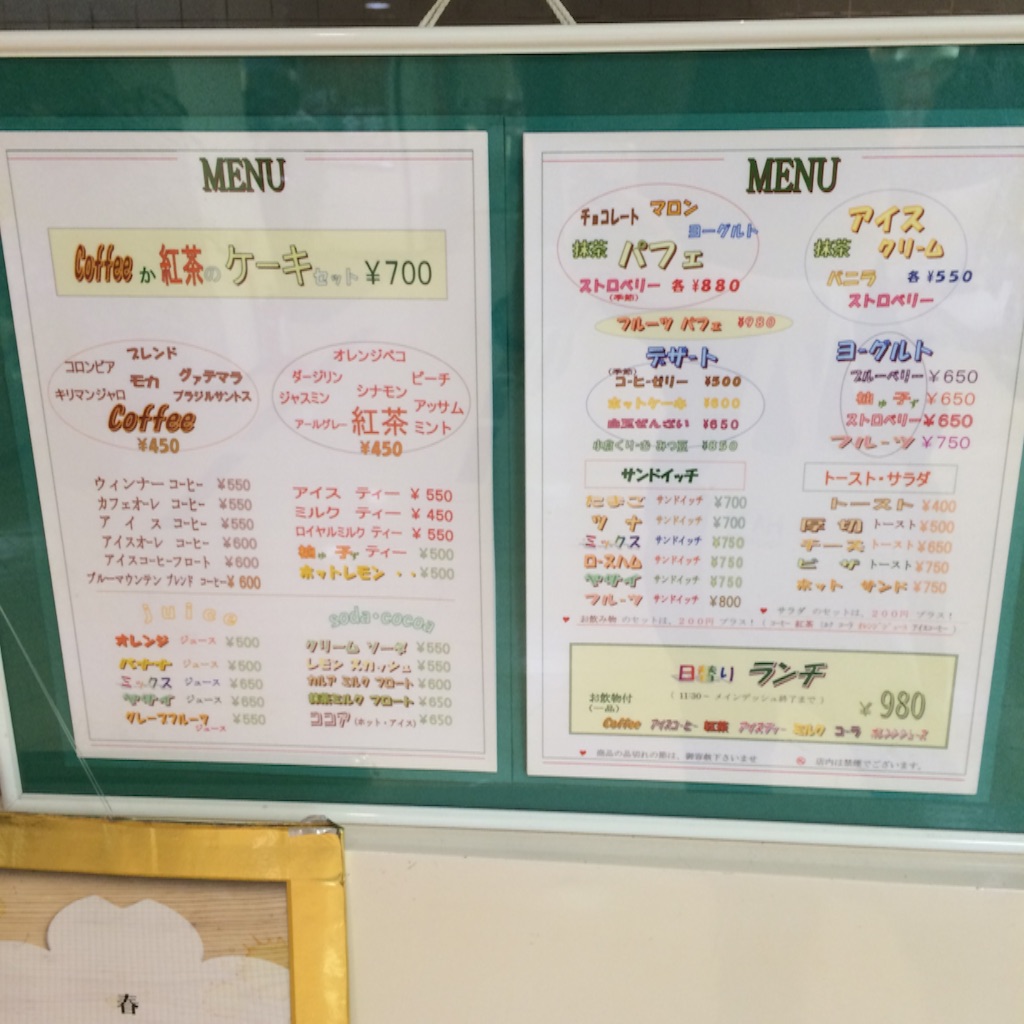 MENU
Coffee か 紅茶の ケーキ セット ¥700
コロンビア ブレンド
モカ グァテマラ
キリマンジャロ ブラジルサントス
Coffee
¥450
オレンジペコ
ダージリン ピーチ
シナモン
ジャスミン アッサム
アールグレー 紅茶 ミント
¥450
ウィンナー コーヒー ¥550
カフェオーレ コーヒー ¥550
アイス コーヒー ¥550
アイスオーレ コーヒー ¥600
アイスコーヒーフロート ¥600
ブルーマウンテン ブレンド コーヒー ¥600
アイス ティー ¥550
ミルク ティー ¥450
ロイヤルミルク ティー ¥550
柚ゅ子ず ティー ¥500
ホットレモン ・・¥500
juice
オレンジ ジュース ¥500
バナナ ジュース ¥600
ミックス ジュース ¥650
ヤサイ ジュース ¥650
グレープフルーツ ジュース ¥550
soda・cocoa
クリーム ソーダ ¥550
レモン スカッシュ ¥550
カルア ミルク フロート ¥600
抹茶ミルク フロート ¥650
ココア (ホット・アイス) ¥650
MENU
チョコレート マロン
ヨーグルト
抹茶 パフェ
ストロベリー 各 ¥880
(季節)
フルーツ パフェ ¥980
アイス
抹茶 クリーム
バニラ 各 ¥550
ストロベリー
デザート
(季節)
コーヒーゼリー ¥500
ホットケーキ ¥600
白玉ぜんざい ¥650
みつ豆 ¥850
ヨーグルト
ブルーベリー ¥650
柚ゅ子ず ¥650
ストロベリー ¥650
フルーツ ¥750
サンドイッチ
たまご サンドイッチ ¥700
ツナ サンドイッチ ¥700
ミックス サンドイッチ ¥750
ロースハム サンドイッチ ¥750
ヤサイ サンドイッチ ¥750
フルーツ サンドイッチ ¥800
トースト・サラダ
トースト ¥400
厚切 トースト ¥500
チーズ トースト ¥650
ピザ トースト ¥750
ホット サンド ¥750
♥ サラダ のセットは、200円 プラス!
♥ お飲み物 のセットは、200円 プラス! (コーヒー 紅茶 ミルク コーラ オレンジジュース アイスコーヒー)
日替り ランチ
お飲物付 (11:30~ メインデッシュ終了まで)
(一品) ¥980
Coffee アイスコーヒー 紅茶 アイスティー ミルク コーラ オレンジジュース
♥ 商品の品切れの節は、御容赦下さいませ 店内は禁煙でございます。
春